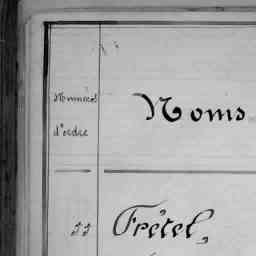 Numéros
d'ordre
Noms
55 Frétel,